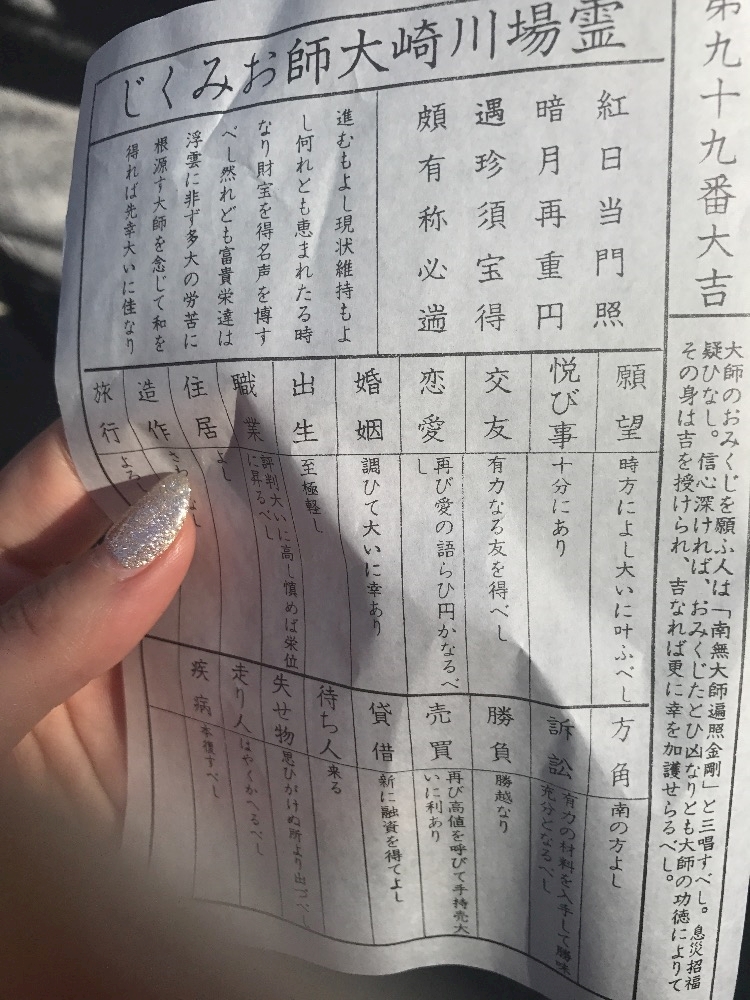 第九十九番大吉
大師のおみくじを願ふ人は「南無大師遍照金剛」と三唱すべし。息災招福
疑ひなし。信心深ければ、おみくじたとひ凶なりとも大師の功徳によりて
その身は吉を授けられ、吉なれば更に幸を加護せらるべし。
霊場川崎大師おみくじ
紅日当門照
暗月再重円
遇珍須宝得
頗有称心遄
進むもよし現状維持もよ
し何れとも恵まれたる時
なり財宝を得名声を博す
べし然れども富貴栄達は
浮雲に非ず多大の労苦に
根源す大師を念じて和を
得れば先幸大いに佳なり
願望
時方によし大いに叶ふべし
悦び事
十分にあり
交友
有力なる友を得べし
恋愛
再び愛の語らひ円かなるべ
し
婚姻
調ひて大いに幸あり
出生
至極軽し
職業
評判大いに高し慎めば栄位
に昇るべし
住居
よし
造作
さわ
し
旅行
よろ
方角
南の方よし
訴訟
有力の材料を入手して勝味
充分となるべし
勝負
勝越なり
売買
再び高値を呼びて手持売大
いに利あり
貸借
新に融資を得てよし
待ち人
来る
失せ物
思ひがけぬ所より出づべし
走り人
はやくかへるべし
疾病
本復すべし